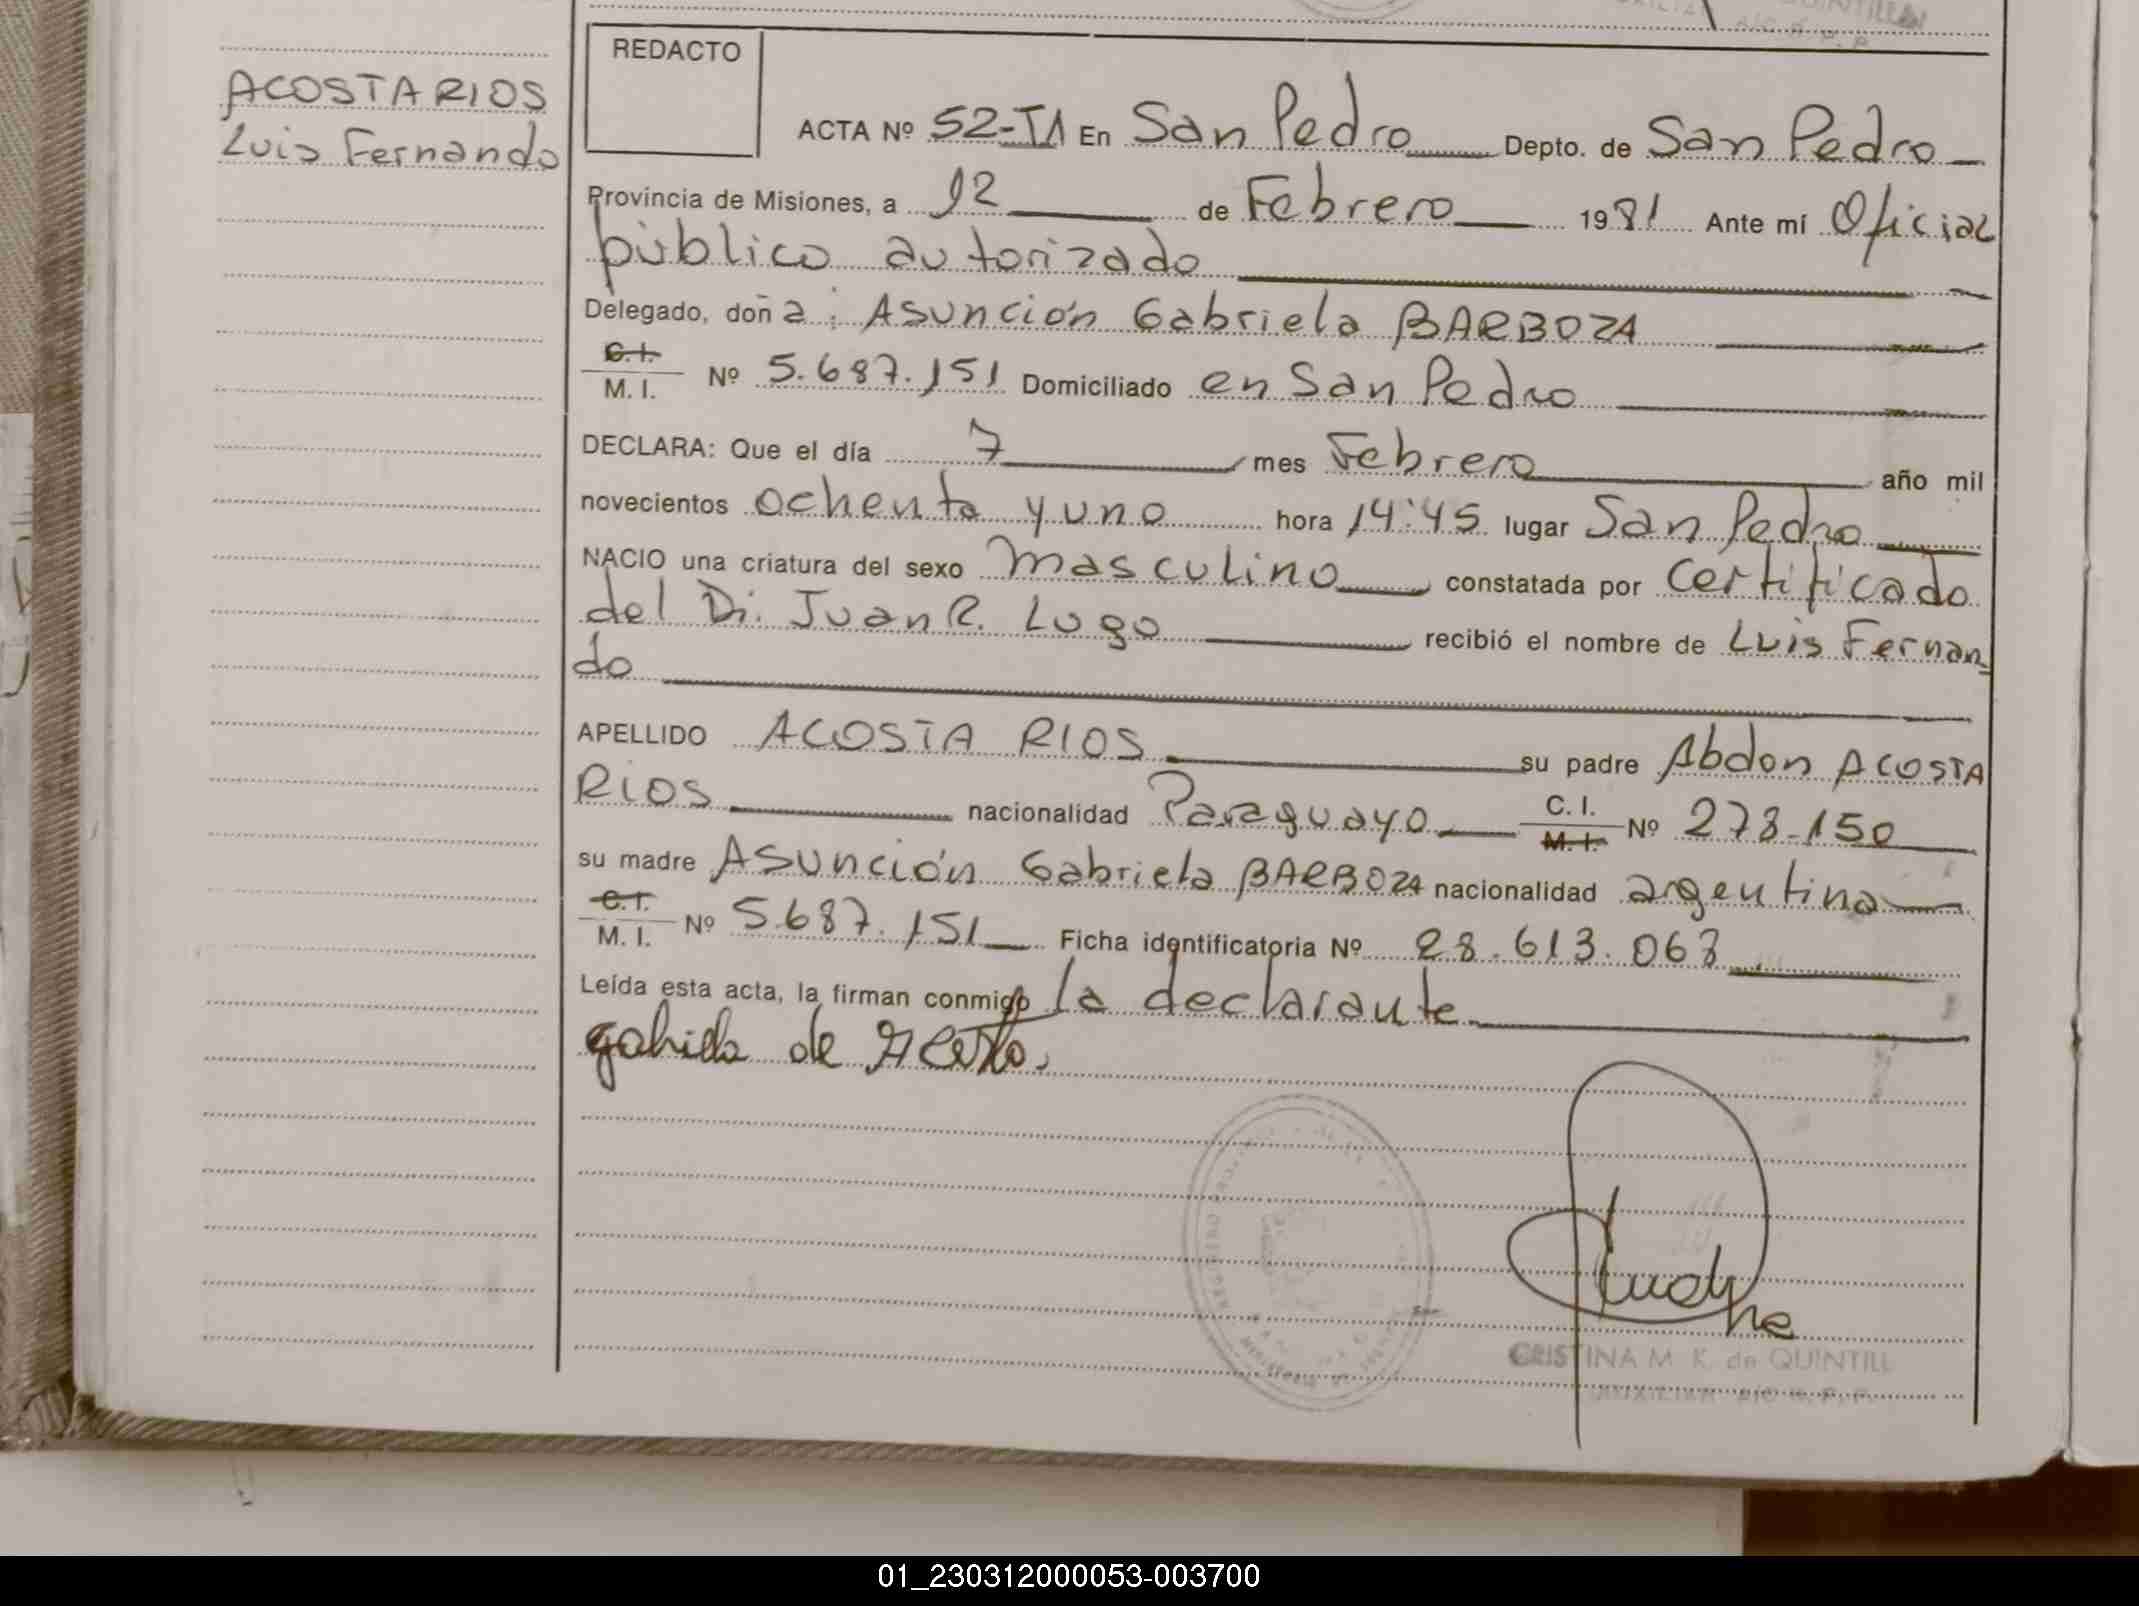 REDACTO
ACOSTA RIOS
Luis Fernando
ACTA Nº 52-TI En San Pedro Depto. de San Pedro
Provincia de Misiones, a 12 de Febrero 1981 Ante mí Oficial
público autorizado
Delegado, doña: Asunción Gabriela BARBOZA
C.I.
M. I. Nº 5.687.151 Domiciliado en San Pedro
DECLARA: Que el día 7 mes Febrero año mil
novecientos ochenta y uno hora 14:45 lugar San Pedro
NACIO una criatura del sexo masculino constatada por certificado
del Dr. Juan R. Lugo recibió el nombre de Luis Fernan-
do
APELLIDO ACOSTA RIOS su padre Abdon ACOSTA
RIOS nacionalidad Paraguayo C. I. Nº 278-150
M. I.
su madre Asunción Gabriela BARBOZA nacionalidad argentina
C.I.
M. I. Nº 5.687.151 Ficha identificatoria Nº 28.613.068
Leída esta acta, la firman conmigo la declarante
de Acosta
CRISTINA M. K. de QUINTILL
AUXILIAR
01_230312000053-003700